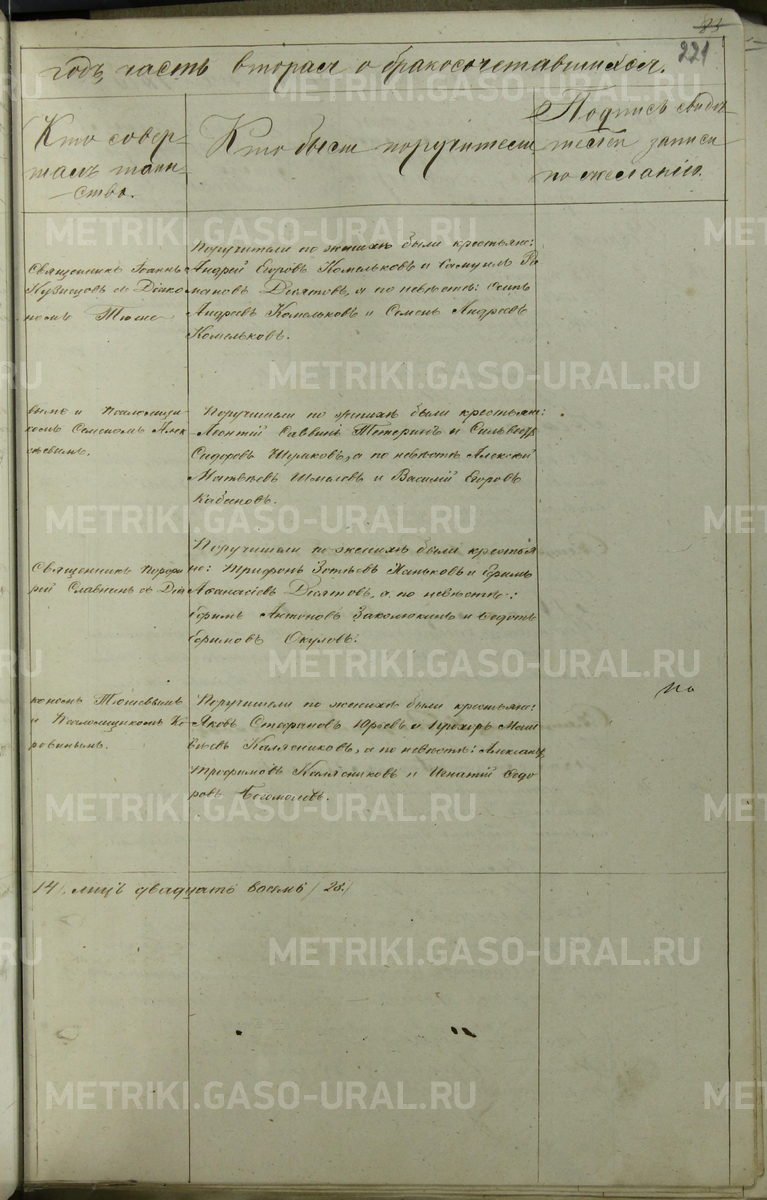 221
годъ, часть вторая о бракосочетавшихся.
Кто совер-
шалъ таин-
ство.
Кто были поручители
Подпись свидѣ-
телей записи
по желанію.
Священникъ Іоаннъ
Кузнецовъ съ Діако-
номъ Тюше-
Поручители по женихѣ были крестьяне:
Андрей Егоровъ Комельковъ и Самуилъ Ро
мановъ Десятовъ, а по невѣстѣ:
Андреевъ Комельковъ и Семенъ Андреевъ
Комельковъ.
вымъ и Псаломщи-
комъ Семеномъ Алек
сѣевымъ.
Поручители по женихѣ были крестьяне:
Леонтій Саввинъ Тетеринъ и
Сидоровъ Шумковъ, а по невѣстѣ Алексѣй
Матвѣевъ Шмелевъ и Василій Егоровъ
Кабановъ.
Священникъ Порфи
рій Славнинъ съ Діа
Поручители по женихѣ были крестья
не: Трифонъ Зотѣевъ Паньковъ и Ефимъ
Аѳанасіевъ Десятовъ, а по невѣстѣ:
Ефимъ Антоновъ Заколюкинъ и Ѳедотъ
Ефимовъ Окуловъ.
кономъ Тюшевымъ
и Псаломщикомъ Ко
ровинымъ.
Поручители по женихѣ были крестьяне:
Яковъ Стефановъ Юрьевъ и Прохоръ Мат
вѣевъ Калясниковъ, а по невѣстѣ: Александръ
Трофимовъ Калясниковъ и Игнатій Ѳедо
ровъ Богомоловъ.
14/. лицъ двадцать восемь /28./
METRIKI.GASO-URAL.RU